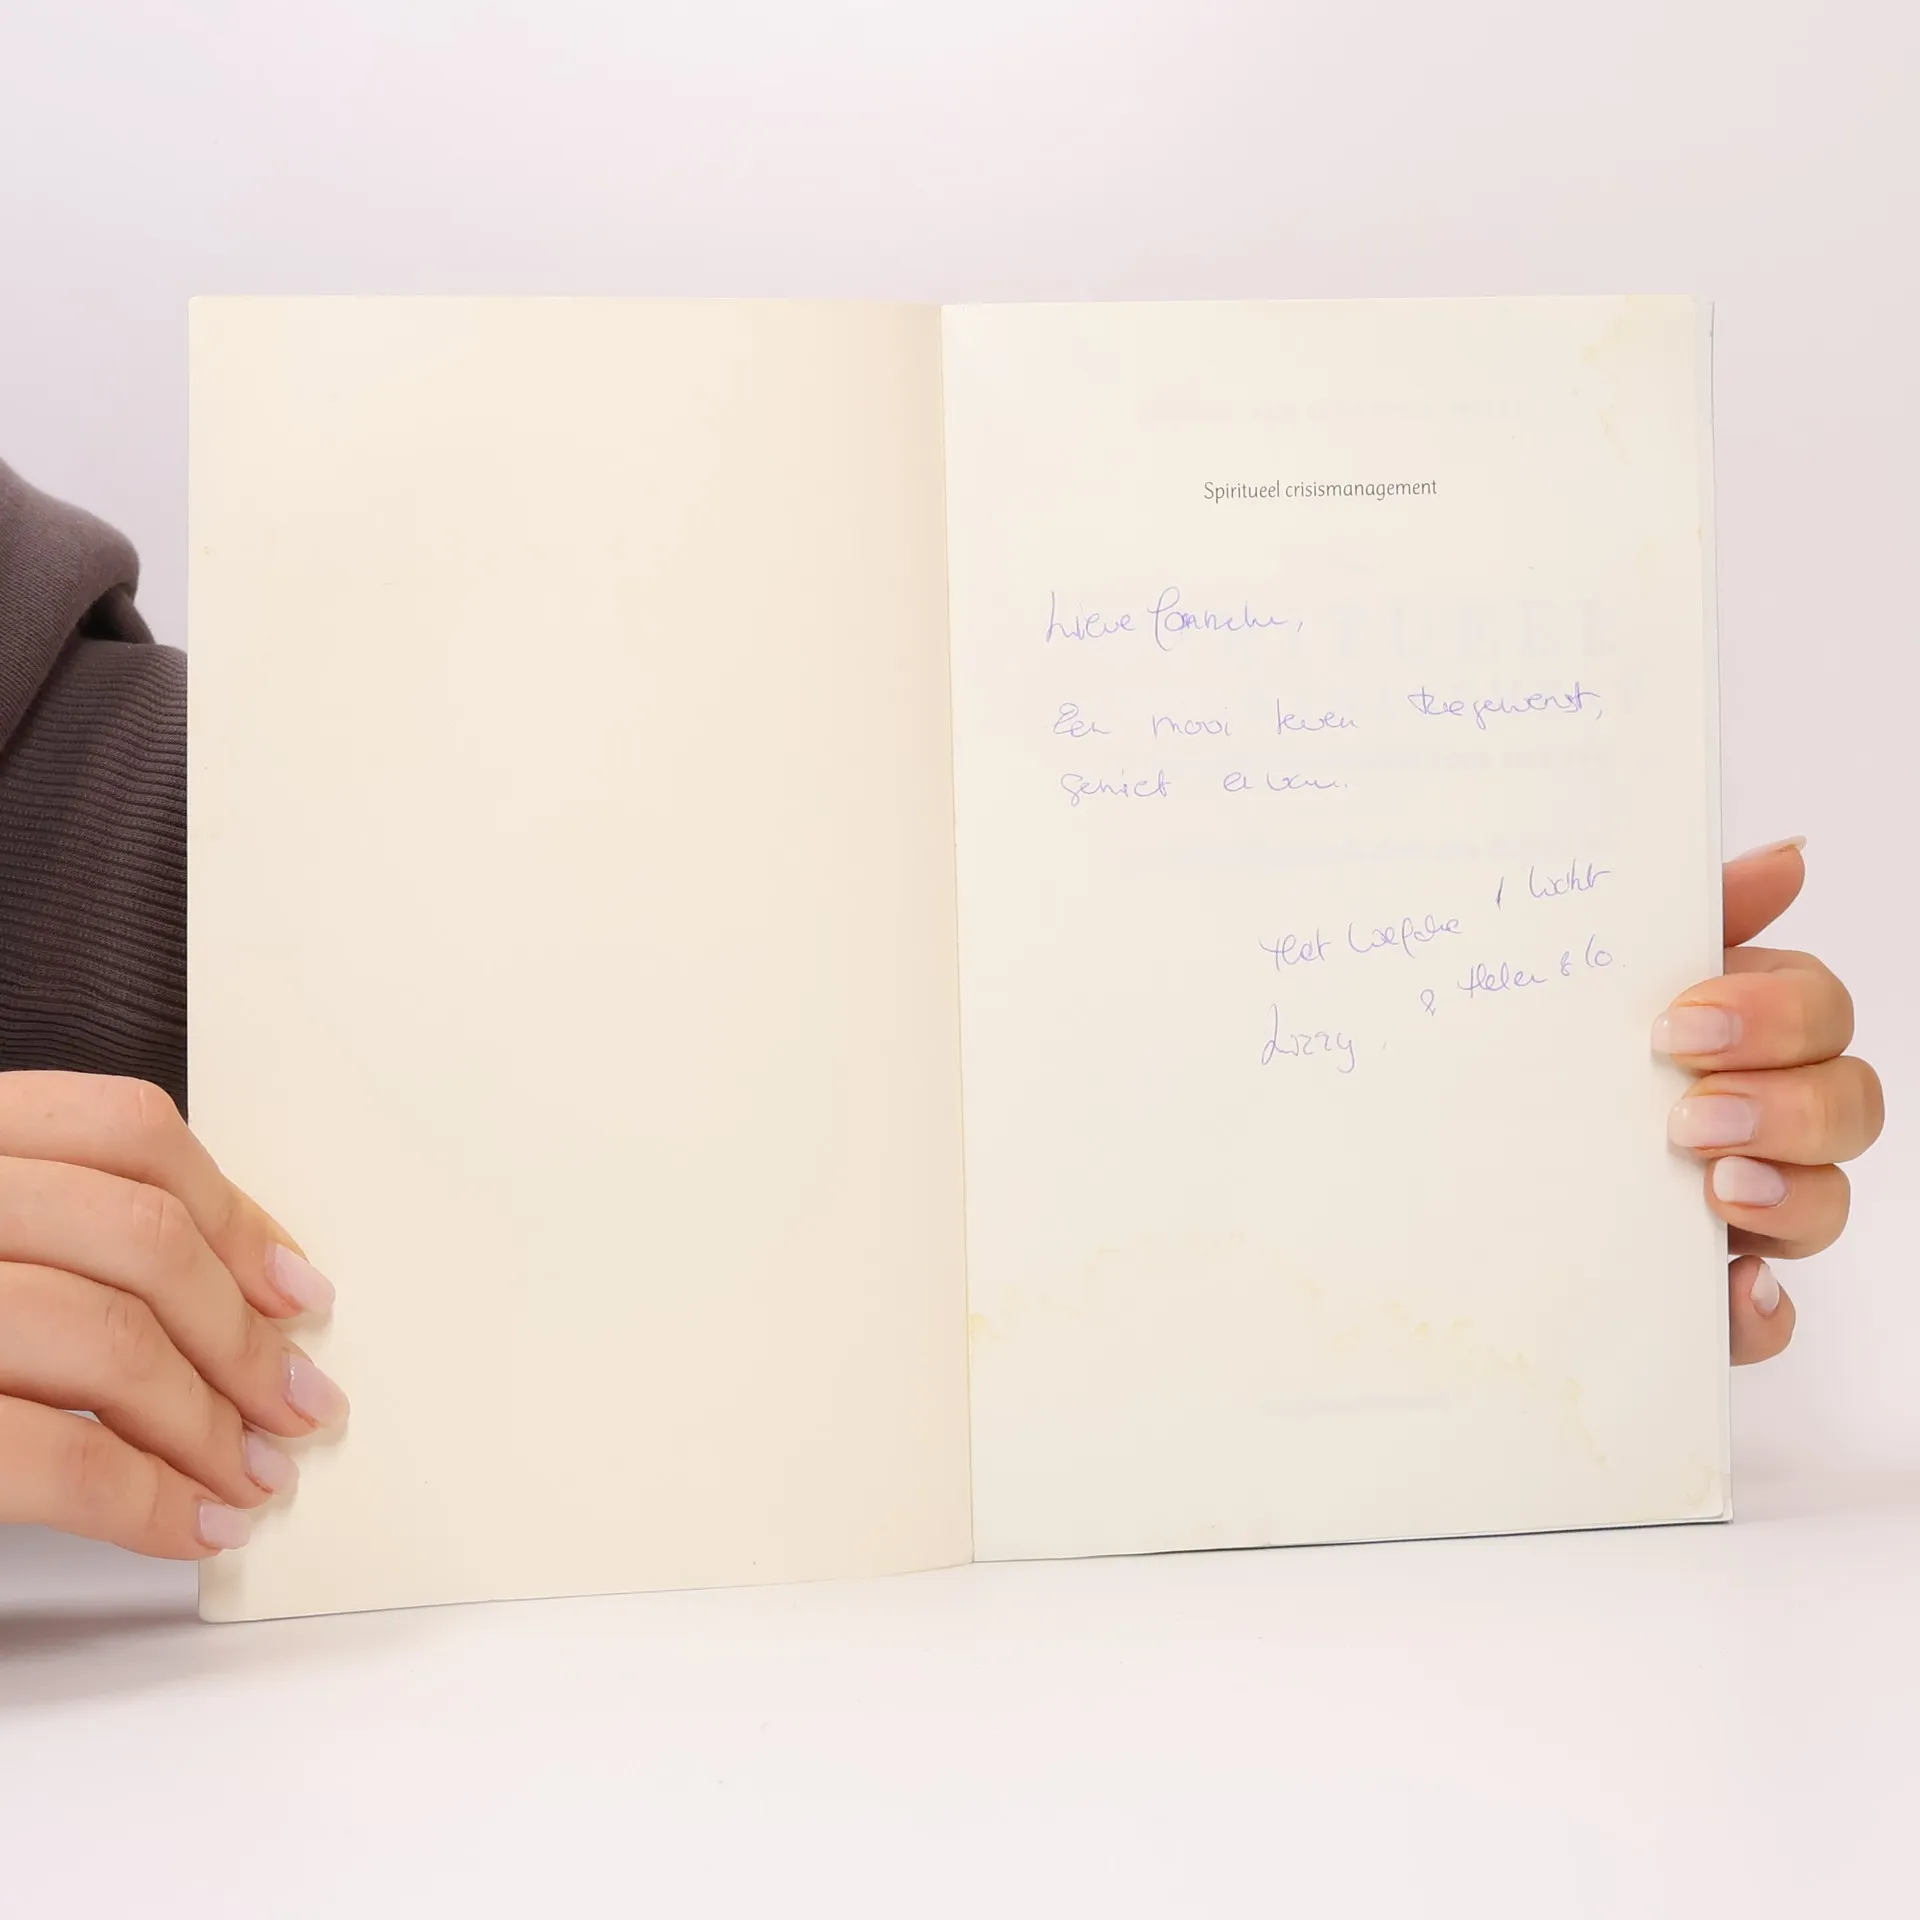 Spiritueel crisismanagement
Lieve
Een mooi leven toegewenst,
geniet er van.
Met Liefde, Licht
Lizzy. & Helen & Co.